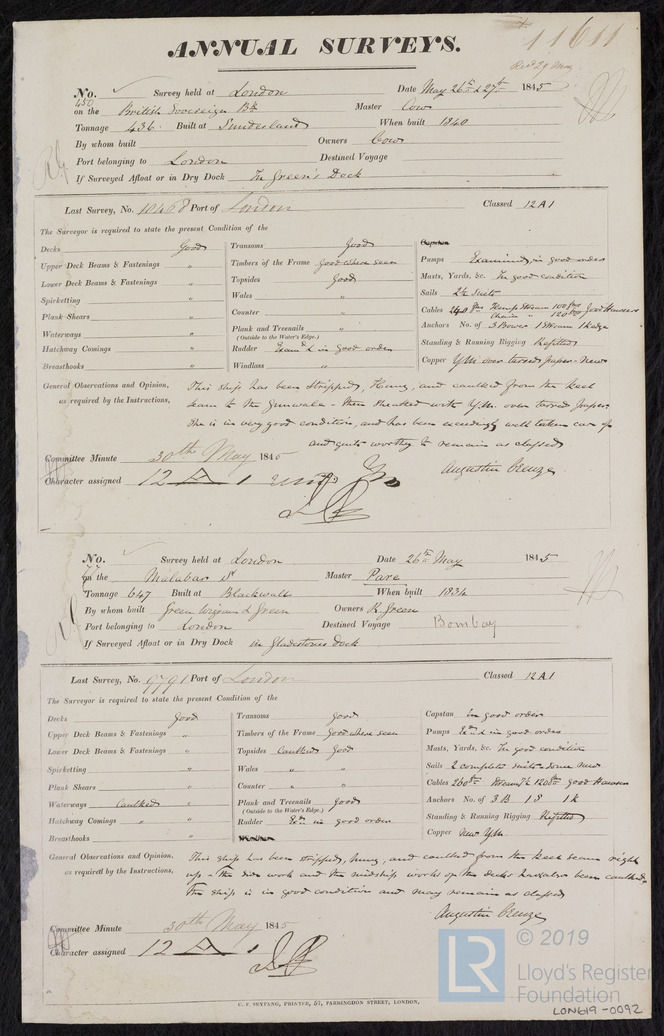 11611
ANNUAL SURVEYS.
Recd 29 May
No. 450 Survey held at London Date May 26th & 27th 1845
on the British Sovereign Bk Master Cow
Tonnage 436 Built at Sunderland When built 1840
By whom built Owners Cow
Port belonging to London Destined Voyage
If Surveyed Afloat or in Dry Dock In Green's Dock
Last Survey, No. 10468 Port of London Classed 12 A1
The Surveyor is required to state the present Condition of the
Decks Good
Upper Deck Beams & Fastenings "
Lower Deck Beams & Fastenings "
Spirketting "
Plank Shears "
Waterways "
Hatchway Comings "
Breasthooks "
Transoms Good
Timbers of the Frame Good where seen
Topsides Good
Wales "
Counter "
Plank and Treenails "
(Outside to the Water's Edge.)
Rudder Exam'd in good order
Windlass "
Capstan
Pumps Examined, in good order
Masts, Yards, &c. In good condition
Sails 2½ Suits
Cables 240 fms Hemp Stream 100 fms
Chain " 120 good Hawsers
Anchors No. of 3 Bower 1 Stream 1 Kedge
Standing & Running Rigging Refitted
Copper Y.M. over tarred paper - New
General Observations and Opinion, This ship has been stripped, Hung, and caulked from the keel
as required by the Instructions, seam to the Gunwale - then sheathed with Y.M. over tarred paper.
She is in very good condition, and has been exceedingly well taken care of
and quite worthy to remain as classed
Augustin Creuze
Committee Minute 30th May 1845
Character assigned 12 A 1
No. 77 Survey held at London Date 26th May 1845
on the Malabar Sr Master Pare
Tonnage 647 Built at Blackwall When built 1834
By whom built Green Wigram & Green Owners R. Green
Port belonging to London Destined Voyage Bombay
If Surveyed Afloat or in Dry Dock in Gladstones Dock
Last Survey, No. 9791 Port of London Classed 12 A1
The Surveyor is required to state the present Condition of the
Decks Good
Upper Deck Beams & Fastenings "
Lower Deck Beams & Fastenings "
Spirketting "
Plank Shears "
Waterways Caulked
Hatchway Comings " "
Breasthooks "
Transoms good
Timbers of the Frame Good where seen
Topsides Caulked Good
Wales " "
Counter " "
Plank and Treenails Good
(Outside to the Water's Edge.)
Rudder Exd in good order
Windlass
Capstan In good order
Pumps Exd & in good order
Masts, Yards, &c. In good condition
Sails 2 complete suits some new
Cables 260 fms Stream 120 fms good Hawsers
Anchors No. of 3 B 1 S 1 K
Standing & Running Rigging Refitted
Copper New Y.M.
General Observations and Opinion, This ship has been stripped, hung, and caulked from the keel seam right
as required by the Instructions, up - the side work and the midship works of the decks have also been caulked.
The ship is in good condition and may remain as classed
Augustin Creuze
Committee Minute 30th May 1845
Character assigned 12 A 1
U. F. SEYFANG, PRINTER, 57, FARRINGDON STREET, LONDON,
LR © 2019
Lloyd's Register
Foundation
LON619-0092